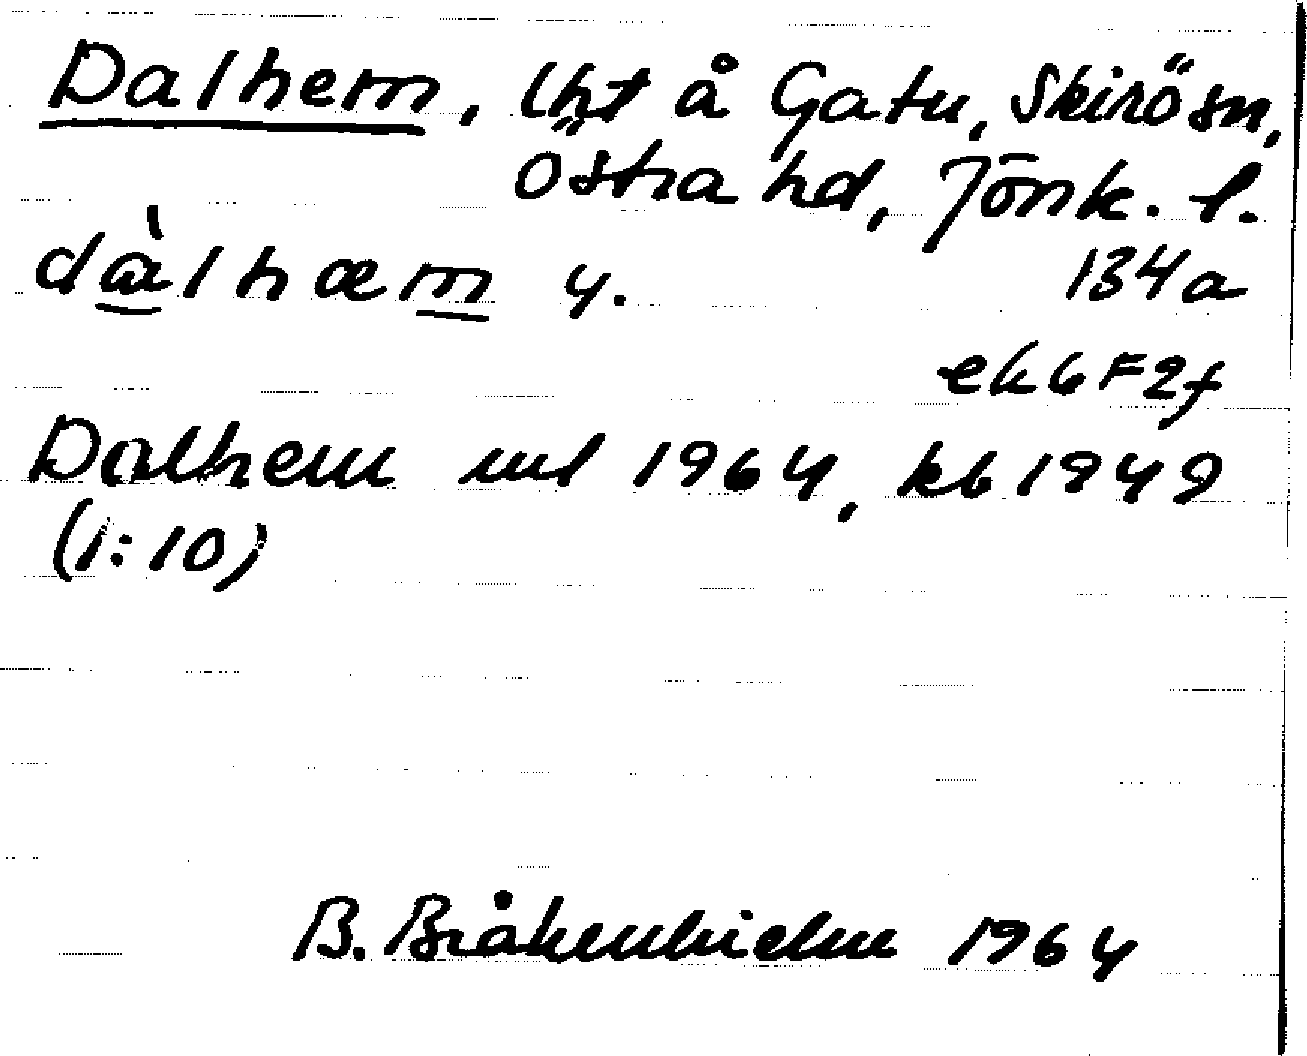 Dalhem, lht å Gatu, Skirö sn,
Östra hd, Jönk. l.
dàlhæm y. 134a
ek 6 F 2 f
Dalhem ml 1964, kb 1949
(1:10)
B. Bråkenhielm 1964